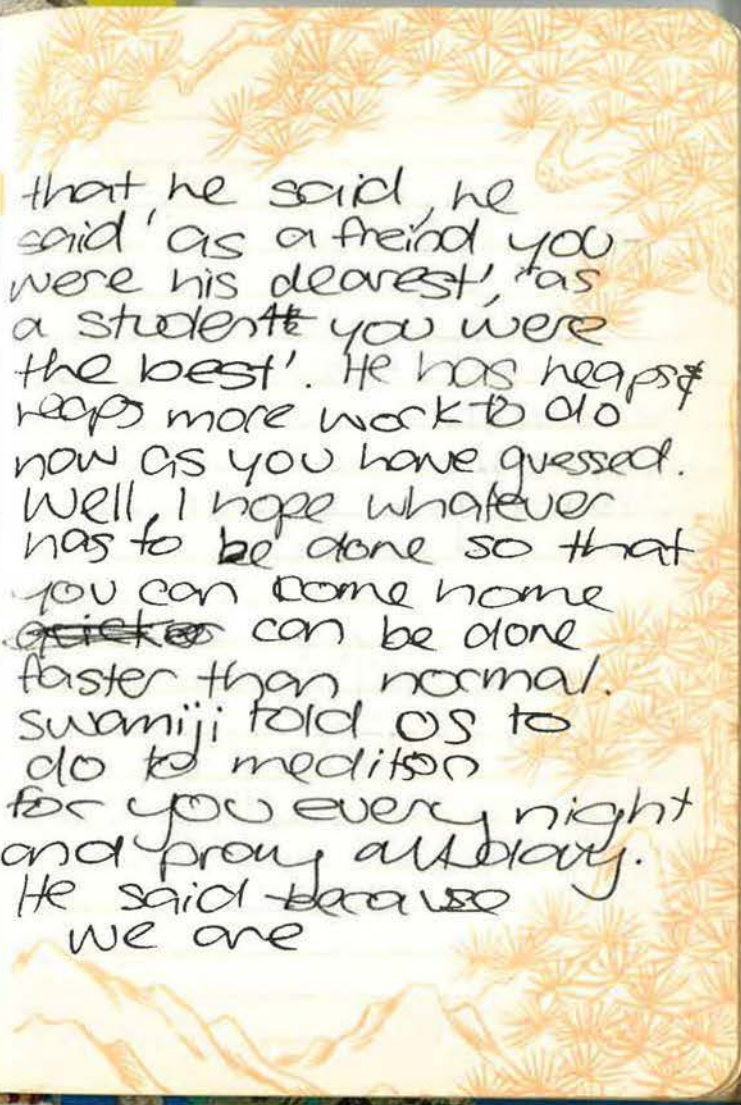 that he said, he
said 'as a freind you
were his dearest', 'as
a student you were
the best'. He has heaps &
heaps more work to do
now as you have guessed.
Well, I hope whatever
has to be done so that
you can come home
can be done
faster than normal.
swamiji told us to
do to mediton
for you every night
and pray all day.
He said because
we are